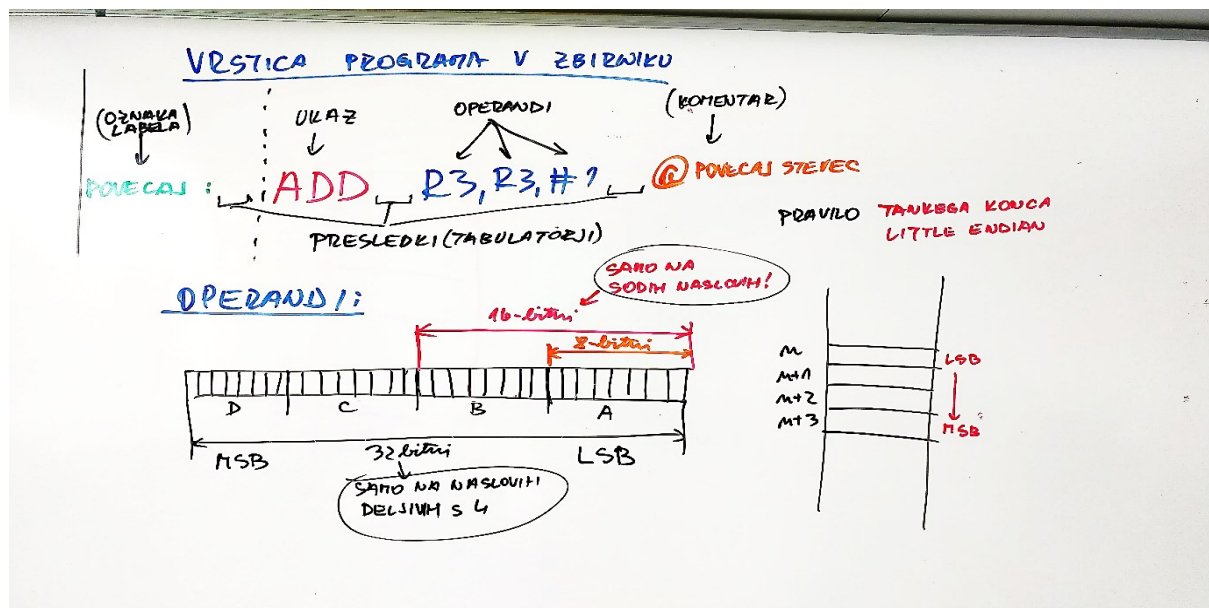 VRSTICA PROGRAMA V ZBIRNIKU
(OZNAKA
LABELA)
UKAZ
OPERANDI
(KOMENTAR)
POVECAJ : ADD R3, R3, #1 @ POVECAJ STEVEC
PRESLEDKI (TABULATORJI)
PRAVILO TANKEGA KONCA
LITTLE ENDIAN
OPERANDI:
SAMO NA
SODIH NASLOVIH!
16-bitni
8-bitni
D C B A
MSB 32 bitni LSB
SAMO NA NASLOVIH
DELJIVIH S 4
n
n+1
n+2
n+3
LSB
MSB